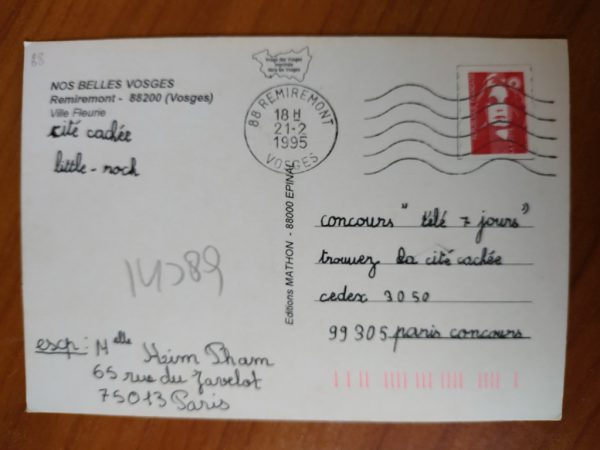 88
NOS BELLES VOSGES
Remiremont - 88200 (Vosges)
Ville Fleurie
cité cachée
little-rock
14789
exp: Melle Heim Pham
65 rue du Javelot
75013 Paris
Editions MATHON - 88000 EPINAL
88 REMIREMONT
18 H
21-2
1995
VOSGES
concours "télé 7 jours"
trouvez la cité cachée
cedex 3050
99305 paris concours